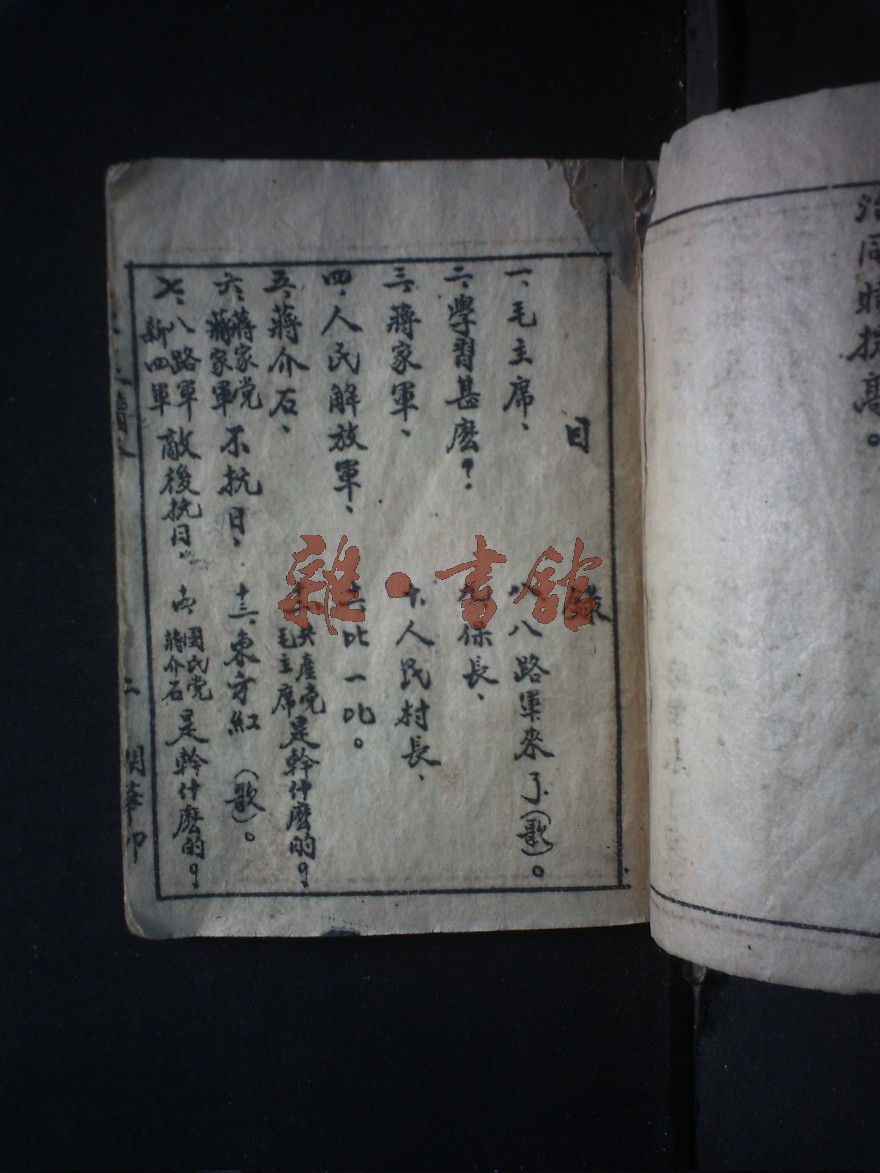 目 錄
一、毛主席、
八、八路軍來了(歌)。
二、學習甚麽?
保長、
三、蔣家軍、
十、人民村長、
四、人民解放軍、
比一比。
五、蔣介石、
共產党 毛主席 是幹什麽的?
六、蔣家党 蔣家軍 不抗日、
十三、東方紅(歌)。
七、八路軍 新四軍 敵後抗日、
國民党 蔣介石 是幹什麽的?
二
印
高。
雜·書館